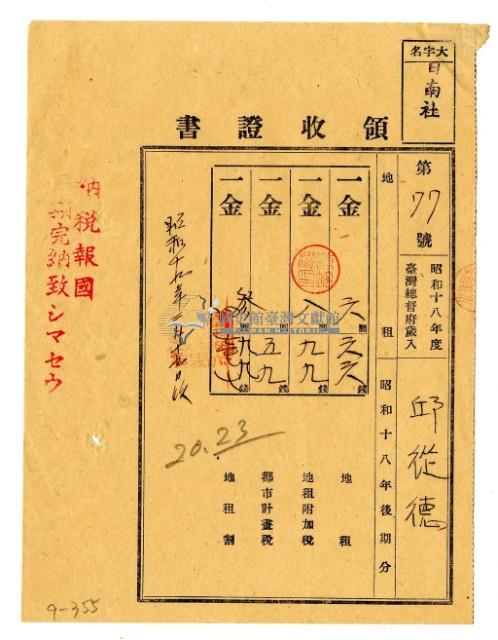 大字名
日南社
領收證書
第77號
昭和十八年度
臺灣總督府歲入
邱從德
地租
昭和十八年後期分
一金 六圓六六錢
地租
一金 八圓九九錢
地租附加稅
一金 圓五九錢
都市計畫稅
一金 參圓九九錢
地租割
20.23
納稅報國
完納致シマセウ
國史館臺灣文獻館
TAIWAN HISTORICA
9-355